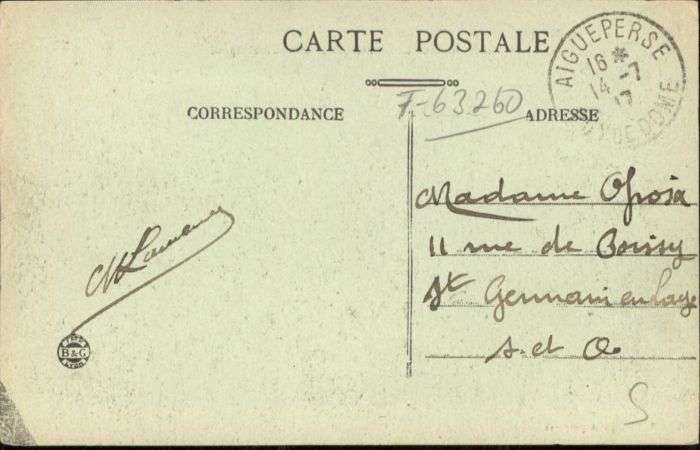 CARTE POSTALE
CORRESPONDANCE
ADRESSE
F-63260
AIGUEPERSE
16 *
14-7
17
PUY DE DOME
Madame
11 rue de Boissy
St Germain en Laye
S. et O.
B & G
Lyon
S